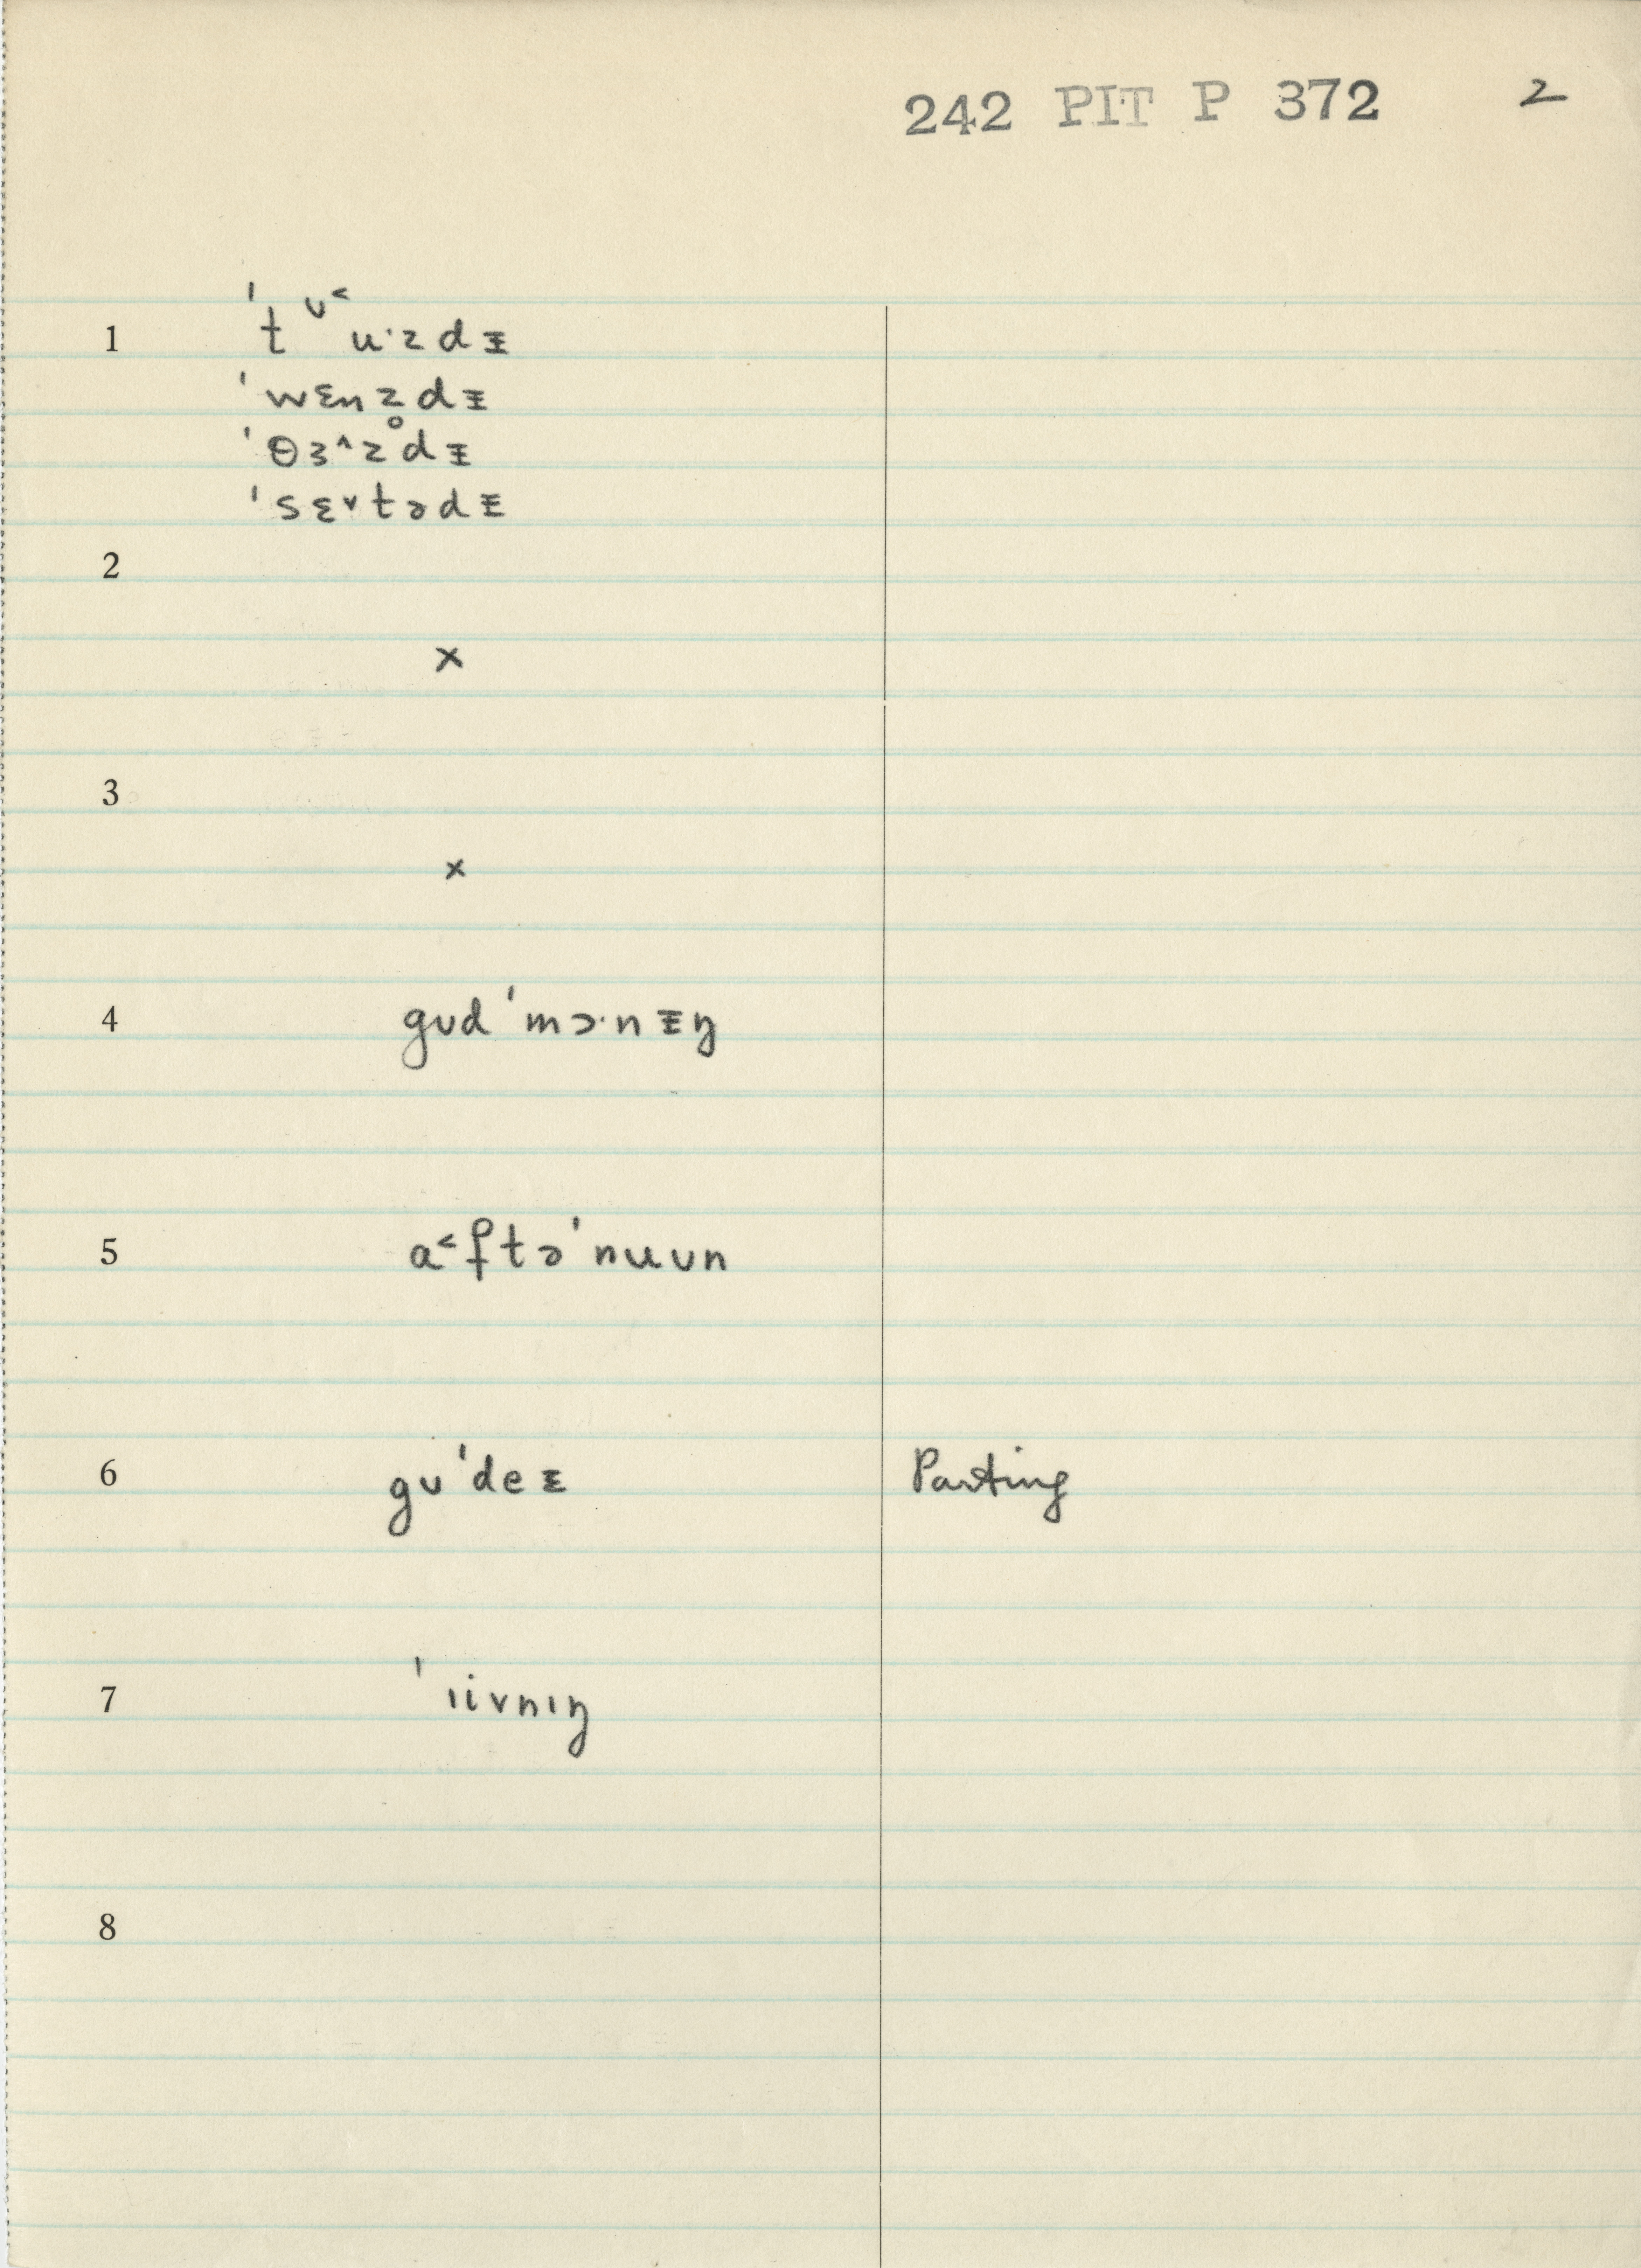 242 PIT P 372 2
1 ˈtᶷ˂u·zdᵻ
ˈwɛnz̥dᵻ
ˈθɜ˄zdᵻ
ˈsɛ˅tədᵻ
2
×
3
×
4 gʊdˈmɔ·nᵻŋ
5 a˂ftəˈnuʊn
6 gʊˈdeᵻ Parting
7 ˈɪivnɪŋ
8